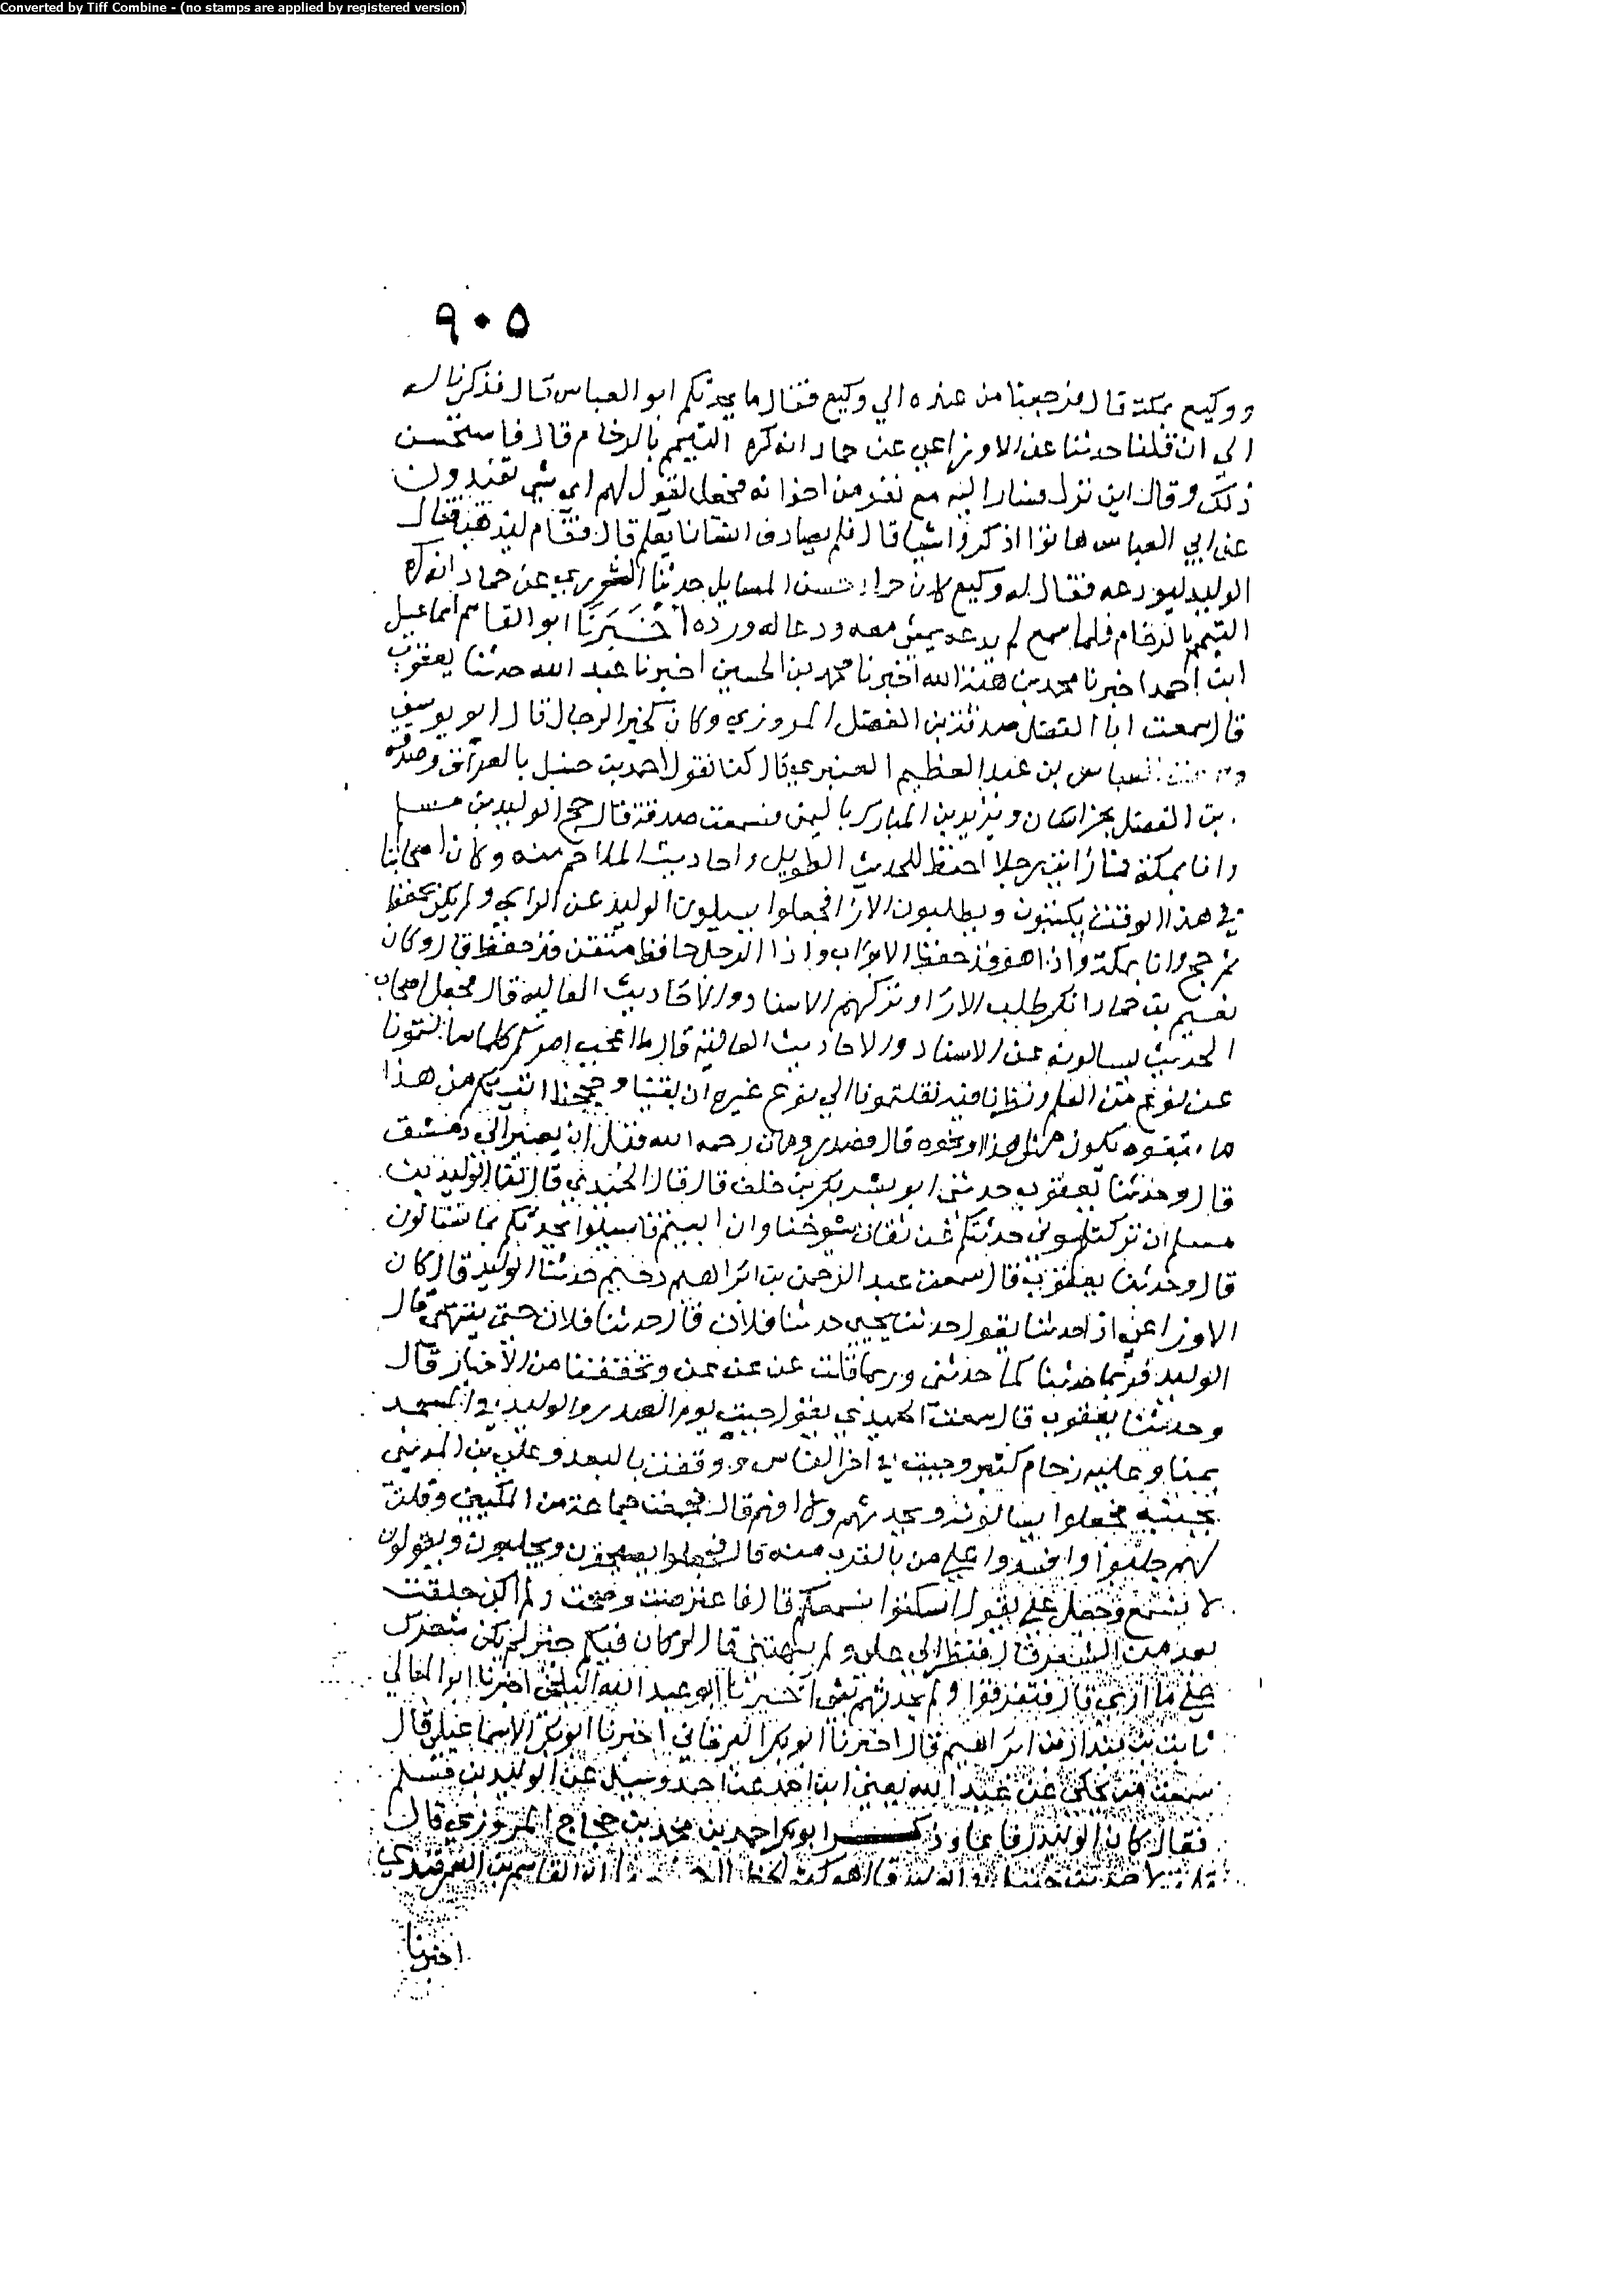 Converted by Tiff Combine - (no stamps are applied by registered version)
٩٠٥
ووكيع بمكة قال فرجعنا من عنده الي وكيع فقال ما يحدثكم ابو العباس قال فذكرنا له
الى ان قلنا حدثنا عن الاوزاعي عن حماد انه كره التيمم بالرخام قال فاستحسن
ذلك وقال اين نزل فسار اليه مع نفر من اخوانه فجعل يقول لهم اي شي تفيدون
عن ابي العباس هاتوا اذكروا شيا قال فلم يصادف انسانا يعلم قال فقام ليذهب فقال
الوليد ليودعه فقال له وكيع حسن المسايل حدثنا الثوري عن حماد انه كره
التيمم بالرخام فلما سمع لم يدعه يمشي معه ودعا له ورده أخبرنا ابو القاسم اسماعيل
ابن احمد اخبرنا محمد بن هبة الله اخبرنا محمد بن الحسين اخبرنا عبد الله حدثنا يعقوب
قال سمعت ابا الفضل صدقة بن الفضل المروزي وكان كخير الرجال قال ابو يوسف
العباس بن عبد العظيم العنبري قال كنا نقول احمد بن حنبل بالعراق وصدقه
بن الفضل بخراسان ويزيد بن المبارك باليمن فسمعت صدقة قال حج الوليد بن مسلم
وانا بمكة فما رايت رجلا احفظ للحديث الطويل واحاديث الملاحم منه وكان اصحابنا
في هذا الوقت يكتبون ويطلبون الارا فجعلوا يسيلون الوليد عن الراي ولم يكن يحفظ
ثم حج وانا بمكة واذا هو قد حفظ الابواب واذا الرجل حافظ متقن قد حفظ قال وكان
نعيم بن حماد انكر طلب الارا وتركهم الاسناد والاحاديث العالية قال فجعل اصحاب
الحديث يسالونه عن الاسناد والاحاديث العالية قال ما اعجب امركم كلما
عن نوع من العلم ونظرنا فيه نقلتمونا الي نوع غيره ان بقينا وحججنا اتيناكم من هذا
ما يكون مثل هذا ونحوه قال فصدر ومات رحمه الله قبل ان يصير الي دمشق
قال وحدثنا يعقوب حدثني ابو بشر بكر بن خلف قال قال الحميدي قال لنا الوليد بن
مسلم ان تركتموني حدثتكم عن ثقات شيوخنا وان ابيتم فاسيلوا نحدثكم بما تسالون
قال وحدثنا يعقوب قال سمعت عبد الرحمن بن ابراهيم دحيم حدثنا الوليد قال كان
الاوزاعي اذا حدثنا يقول حدثنا يحيى حدثنا فلان قال حدثنا فلان حتى ينتهي قال
الوليد فربما حدثنا كما حدثني وربما قلت عن عن عن وتخففنا من الاخبار قال
وحدثنا يعقوب قال سمعت الحميدي يقول جيت يوم الصدر والوليد في المسجد
بمنا وعليه زحام كثير وجيت في اخر الناس ووقفت بالبعد وعلي بن المديني
بجنبه فجعلوا يسالونه ويحدثهم ولا افهم قال فجمعت جماعة من المكيين وقلت
لهم جلبوا وافسدوا علي من بالقرب منه قال فجعلوا يصيحون ويجلبون ويقولون
لا نسمع وجعل علي يقول اسكتوا نسمعكم قال فاعترضت وصحت ولم اكن حلقت
بعد من الشعر قال فنظر الي علي ولم يثبتني قال لو كان فيكم خير لم يكن شعرك
علي ما اري قال فتفرقوا ولم يحدثهم بشي أخبرنا ابو عبد الله البلخي اخبرنا ابو المعالي
ثابت بن بندار بن ابراهيم قال اخبرنا ابو بكر البرقاني اخبرنا ابو بكر الاسماعيلي قال
سمعت من يحكي عن عبد الله يعني ابن احمد عن احمد وسيل عن الوليد بن مسلم
فقال كان الوليد رفاعا وذكر ابو بكر احمد بن محمد بن حجاج المروزي قال
الوليد قال هو كثير الخطا القاسم بن السمرقندي
اخبرنا